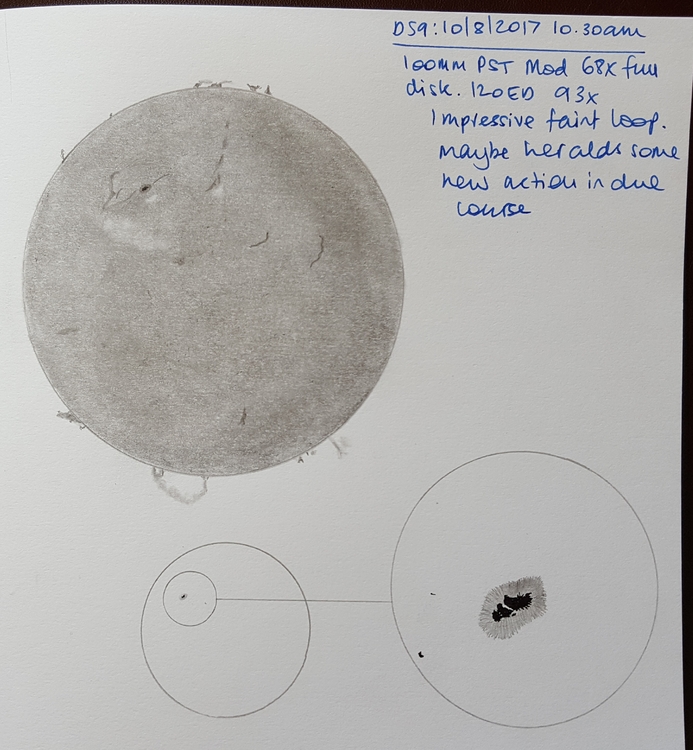 DS9:10/8/2017 10.30am
100mm PST Mod 68x full
disk. 120ED 93x
Impressive faint loop.
maybe heralds some
new action in due
course